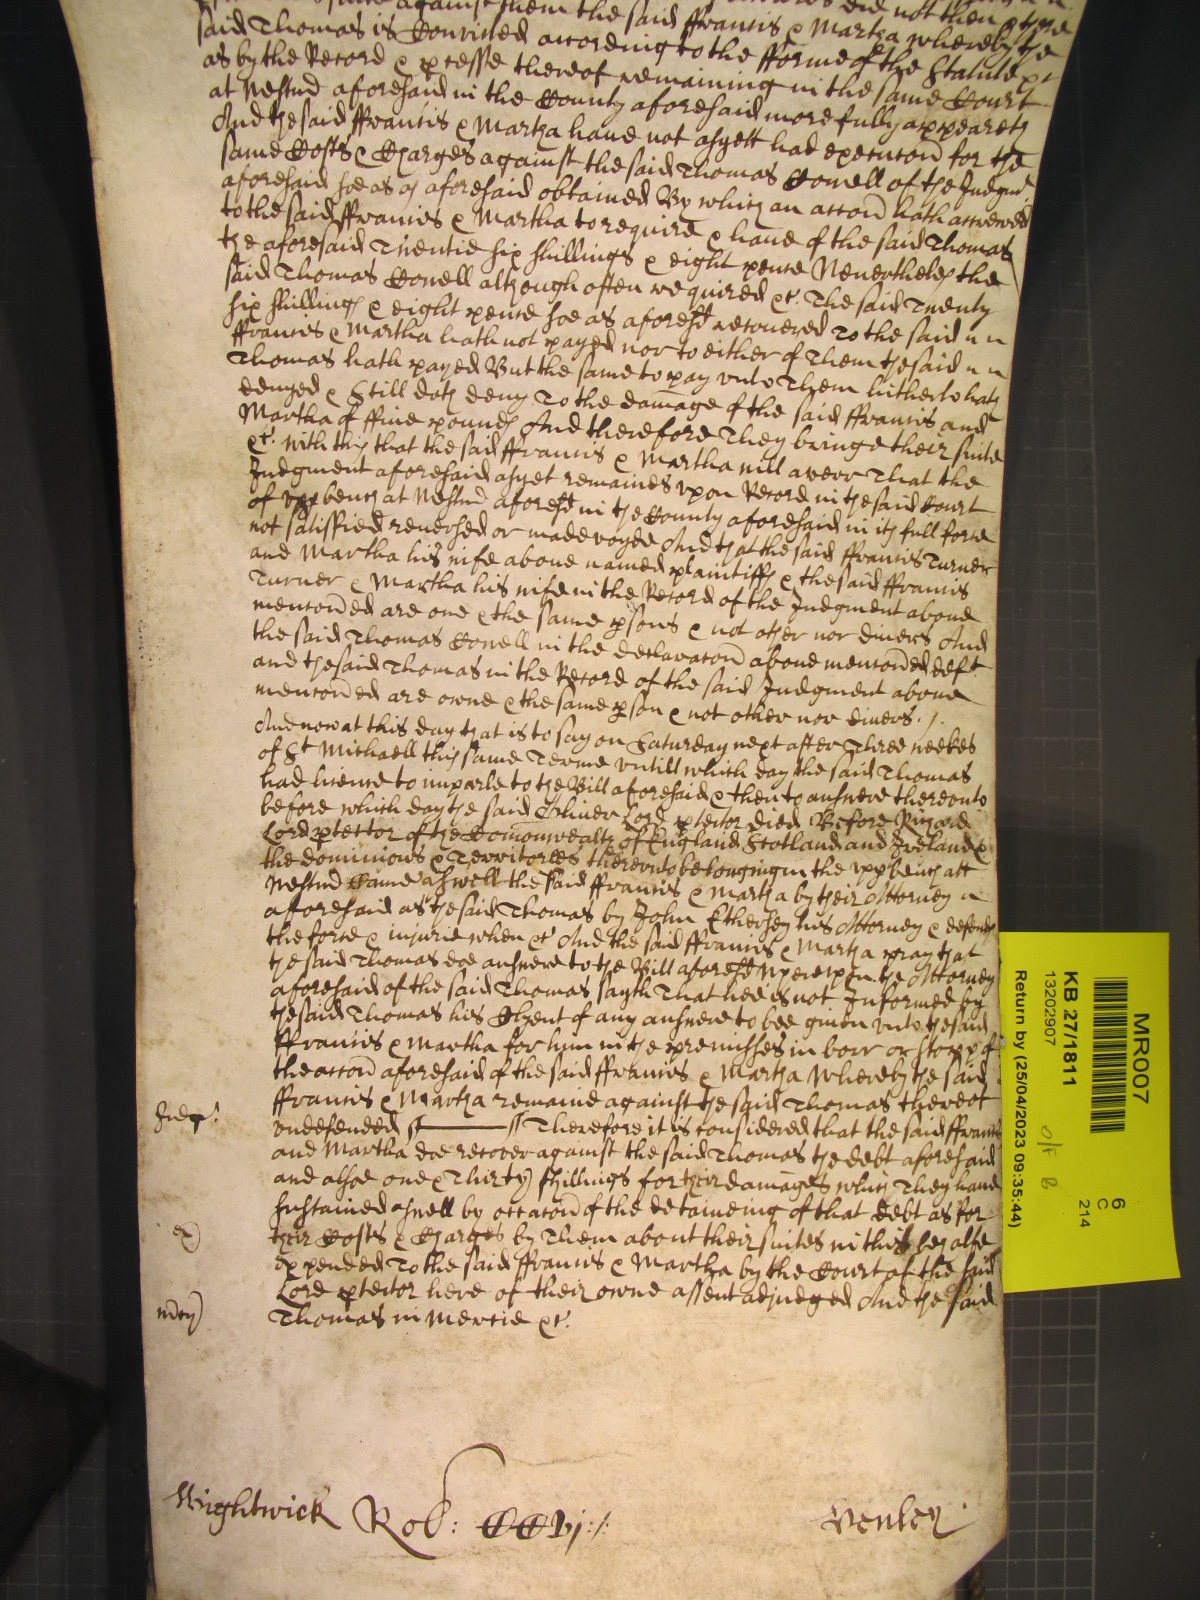 against them the said ffrancis & Martha did not then & there
said Thomas is Convicted according to the fforme of the Statute &c
as by the Record & processe thereof remaining in the same Court
at Westmr aforesaid in the County aforesaid more fully appeareth
And the said ffrancis & Martha have not as yett had execucon for the
same Costs & Charges against the said Thomas Cowell of the Judgmt
aforesaid soe as aforesaid obtained By which an accon hath accrewed
to the said ffrancis & Martha to require & have of the said Thomas
the aforesaid Twentie six shillings & eight pence Neverthelesse the
said Thomas Cowell although often required &c. The said Twenty
six shillings & eight pence soe as aforesd recovered To the said
ffrancis & Martha hath not payed nor to either of Them the said
Thomas hath payed But the same to pay unto Them hitherto hath
denyed & Still doth deny To the damage of the said ffrancis and
Martha of ffive pounds And therefore They bringe their suite
&c. With this that the said ffrancis & Martha will averr That the
Judgment aforesaid as yet remaines upon Record in the said Court
of upp bench at Westmr aforesd in the County aforesaid in its full force
not satisfied reversed or made voyde And that the said ffrancis Turner
and Martha his wife above named plaintiffs & the said ffrancis
Turner & Martha his wife in the Record of the Judgment above
menconed are one & the same psons & not other nor divers And
the said Thomas Cowell in the declaracon above menconed deft
and the said Thomas in the Record of the said Judgment above
menconed are owne & the same pson & not other nor divers ./.
And now at this day that is to say on Saturday next after Three weekes
of St Michaell this same Terme untill which day the said Thomas
had licence to imparle to the Bill aforesaid & then to answere thereunto
before which day the said Oliver Lord ptector died Before Richard
Lord ptector of the Comonwealth of England Scotland and Ireland &
the dominions & Territories thereunto belonging in the upp bench att
Westmr Came aswell the said ffrancis & Martha by their Attorney
aforesaid as the said Thomas by John Ethersey his Attorney & defends
the force & injurie when &c. And the said ffrancis & Martha pray that
the said Thomas doe answere to the Bill aforesd Whereupon the Attorney
aforesaid of the said Thomas sayth That hee is not Informed by
the said Thomas his Clyent of any answere to bee given unto the said
ffrancis & Martha for him in the premisses in barr or stopp of
the accon aforesaid of the said ffrancis & Martha Whereby the said
ffrancis & Martha remaine against the said Thomas thereof
Judgt.
undefended Therefore it is considered that the said ffrancis
and Martha doe recover against the said Thomas the debt aforesaid
and alsoe one & Thirty shillings for their damages which They have
sustained aswell by occacon of the detaineing of that debt as for
their Costs & Charges by Them about their suites in this behalfe
expended To the said ffrancis & Martha by the Court of the said
Lord ptector here of their owne assent adjudged And the said
mcy
Thomas in Mercie &c.
Wightwick Rob: CCvj:/. Henley
MR007
KB 27/1811
13202907
Return by (25/04/2023 09:35:44)
6
C
214